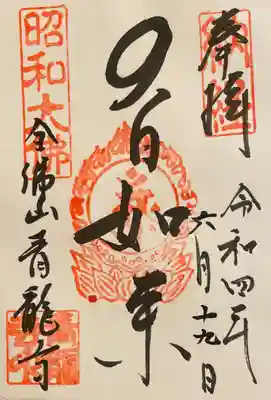 奉拝
令和四年
六月十九日
大日如来
昭和大佛
全佛山青龍寺